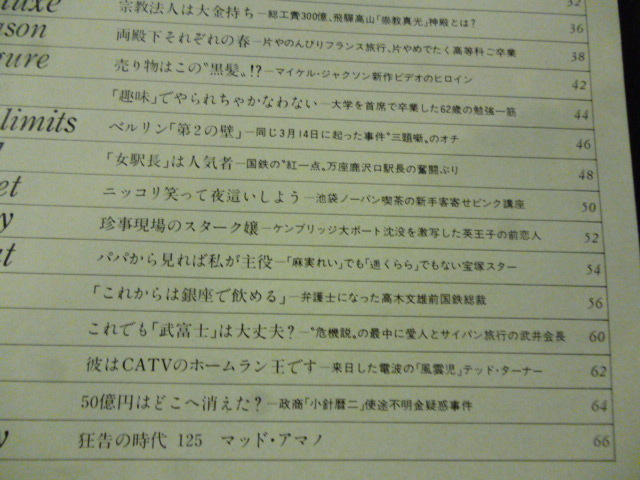 宗教法人は大金持ち—総工費300億、飛驒高山「崇教真光」神殿とは? 36
ason 両殿下それぞれの春—片やのんびりフランス旅行、片やめでたく高等科ご卒業 38
gure 売り物はこの〝黒髪〟!?—マイケル・ジャクソン新作ビデオのヒロイン 42
「趣味」でやられちゃかなわない—大学を首席で卒業した62歳の勉強一筋 44
limits ベルリン「第2の壁」—同じ3月14日に起った事件〝三題噺〟のオチ 46
「女駅長」は人気者—国鉄の〝紅一点〟万座鹿沢口駅長の奮闘ぶり 48
et ニッコリ笑って夜這いしよう—池袋ノーパン喫茶の新手客寄せピンク講座 50
y 珍事現場のスターク嬢—ケンブリッジ大ボート沈没を激写した英王子の前恋人 52
at パパから見れば私が主役—「麻実れい」でも「遥くらら」でもない宝塚スター 54
「これからは銀座で飲める」—弁護士になった高木文雄前国鉄総裁 56
これでも「武富士」は大丈夫?—〝危機説〟の最中に愛人とサイパン旅行の武井会長 60
彼はCATVのホームラン王です—来日した電波の「風雲児」テッド・ターナー 62
50億円はどこへ消えた?—政商「小針暦二」使途不明金疑惑事件 64
y 狂告の時代 125 マッド・アマノ 66